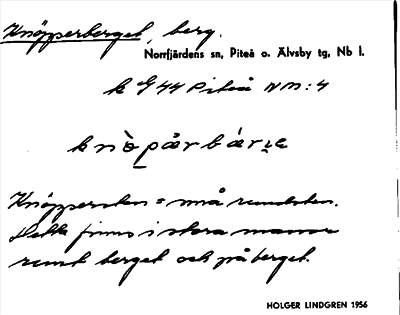 Knöpperberget, berg.
Norrfjärdens sn, Piteå o. Älvsby tg, Nb l.
k G 44 Piteå NM:4
knöpårbárje
Knöppersten = små rundsten.
Detta finns i stora massor
runt berget och på berget.
HOLGER LINDGREN 1956